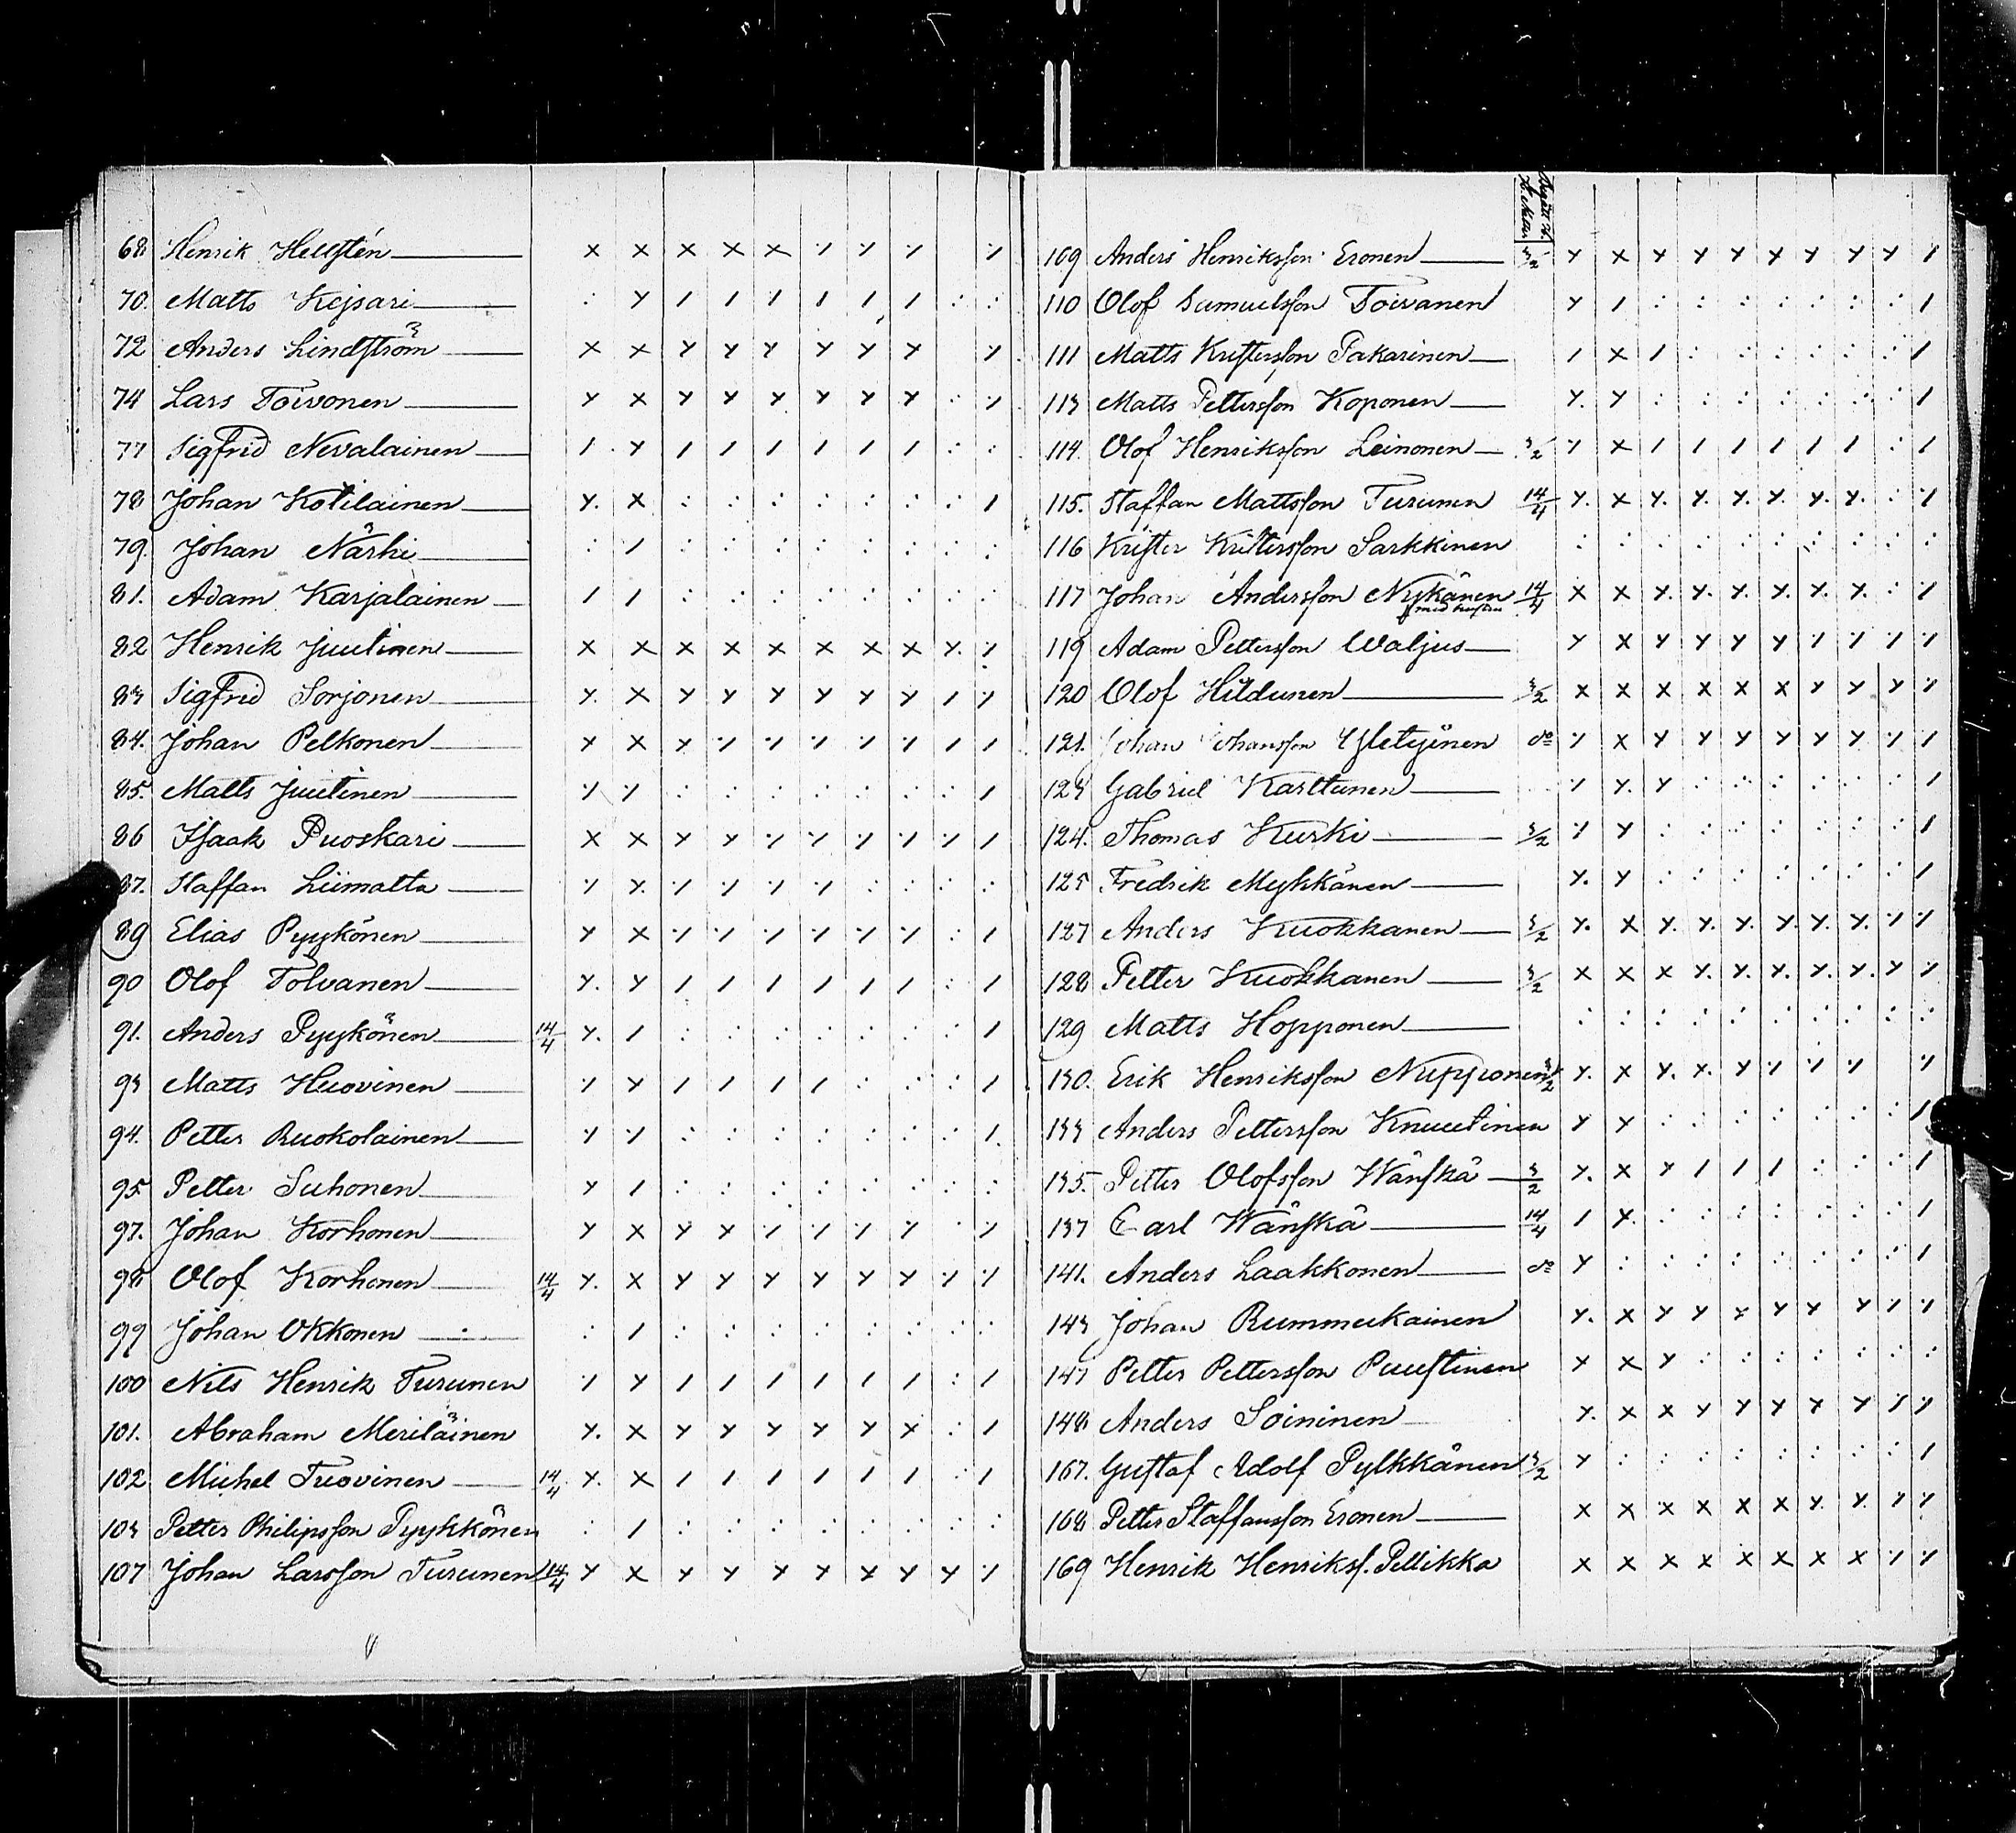 68 Henrik Hellstén
70. Matts Kejsari
72 Anders Lindström
74 Lars Toivonen
77 Sigfrid Nevalainen
78 Johan Kotilainen
79. Johan Närhi
81. Adam Karjalainen
82 Henrik Juutinen
83 Sigfrid Sorjonen
84. Johan Pelkonen
85. Matts Juutinen
86 Isaak Puoskari
87. Staffan Liimatta
89 Elias Pyykönen
90 Olof Tolvanen
91. Anders Pyykönen 14/4
93 Matts Huovinen
94. Petter Ruokolainen
95. Petter Suhonen
97. Johan Korhonen
98 Olof Korhonen 14/4
99 Johan Okkonen
100 Nils Henrik Turunen
101. Abraham Meriläinen
102. Michel Tuovinen 14/4
103 Petter Philipsson Pyykkönen
107 Johan Larsson Turunen 14/4
109 Anders Henriksson Eronen 3/2
110 Olof Samuelsson Toivanen
111 Matts Kristersson Pakarinen
113 Matts Pettersson Koponen
114. Olof Henriksson Leinonen 3/2
115. Staffan Mattsson Turunen 14/4
116 Krister Kristersson Sarkkinen
117 Johan Andersson Nykänen 14/4
med hustru
119 Adam Pettersson Waljus
120 Olof Hildunen 3/2
121. Johan Johansson Yletyinen do
123 Gabriel Karttunen
124. Thomas Kurki 3/2
125 Fredrik Mykkänen
127 Anders Kuokkanen 3/2
128 Petter Kuokkanen 3/2
129 Matts Hopponen
130. Erik Henriksson Nupponen 3/2
133 Anders Pettersson Knuutinen
135. Petter Olofsson Wänskä 3/2
137 Carl Wänskä 14/4
141. Anders Laakkonen do
143 Johan Rummukainen
147 Petter Pettersson Puustinen
148 Anders Soininen
167. Gustaf Adolf Pylkkänen 3/2
168 Petter Staffansson Eronen
169 Henrik Henrikss. Pellikka